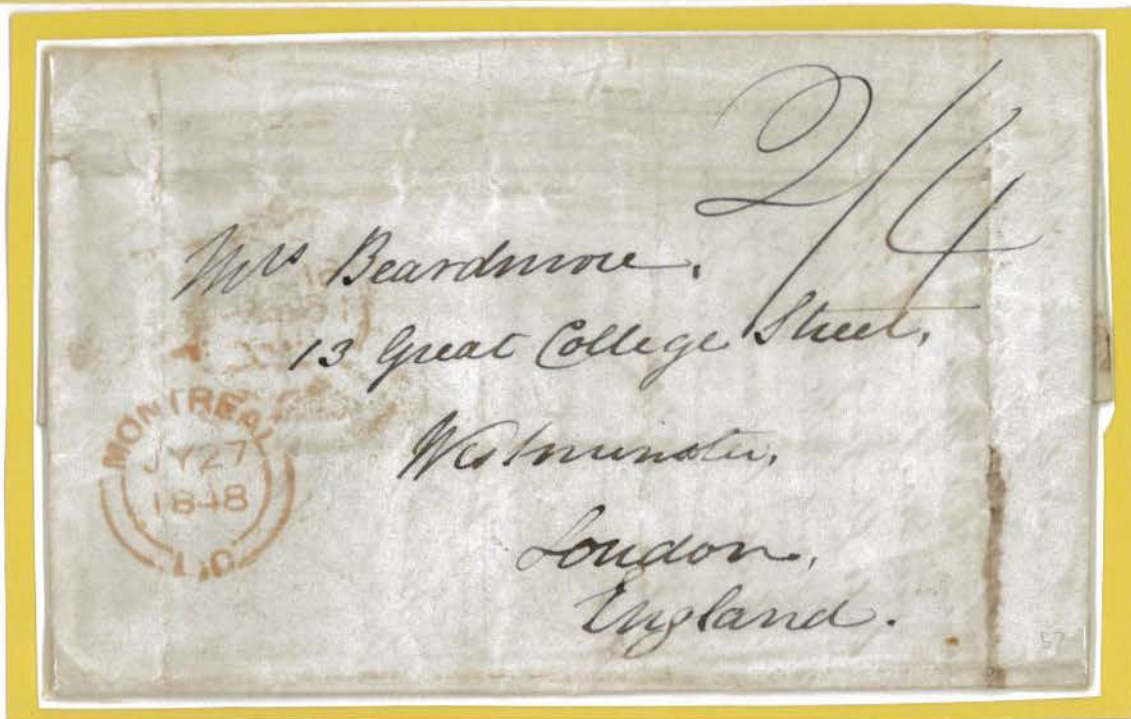 2/4
Mrs Beardmore,
13 Great College Street,
Westminster,
London,
England.
MONTREAL
JY 27
1848
L.C